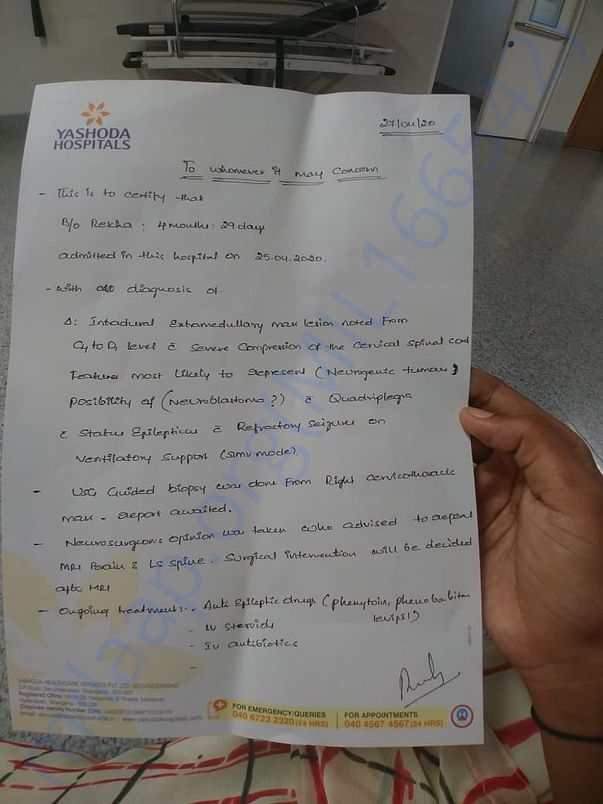 YASHODA
HOSPITALS
27/04/20
To whomever it may concern
- This is to certify that
B/o Rekha : 4 months : 29 days
admitted in this hospital on 25.04.2020.
- with diagnosis of
Δ: Intadural Extramedullary mass lesion noted From
C4 to D1 level c̄ severe compression of the cervical spinal cord
Features most likely to represent (Neurogenic tumour)
Posibility of (Neuroblastoma?) c̄ Quadriplegia
c̄ Status Epilepticus c̄ Refractory Seizures on
Ventilatory support (SIMV mode).
- USG Guided biopsy was done From Right cervicothoracic
mass - report awaited.
- Neurosurgeons opinion was taken who advised to repeat
MRI Brain & LS spine. Surgical intervention will be decided
after MRI
- Ongoing treatment:- Anti Epileptic drugs (phenytoin, phenobabitone
levipil)
- IV steroids
- IV antibiotics
-
YASHODA HEALTHCARE SERVICES PVT. LTD. SECUNDERABAD
FOR EMERGENCY/QUERIES
040 6723 2320 (24 HRS)
FOR APPOINTMENTS
040 4567 4567 (24 HRS)